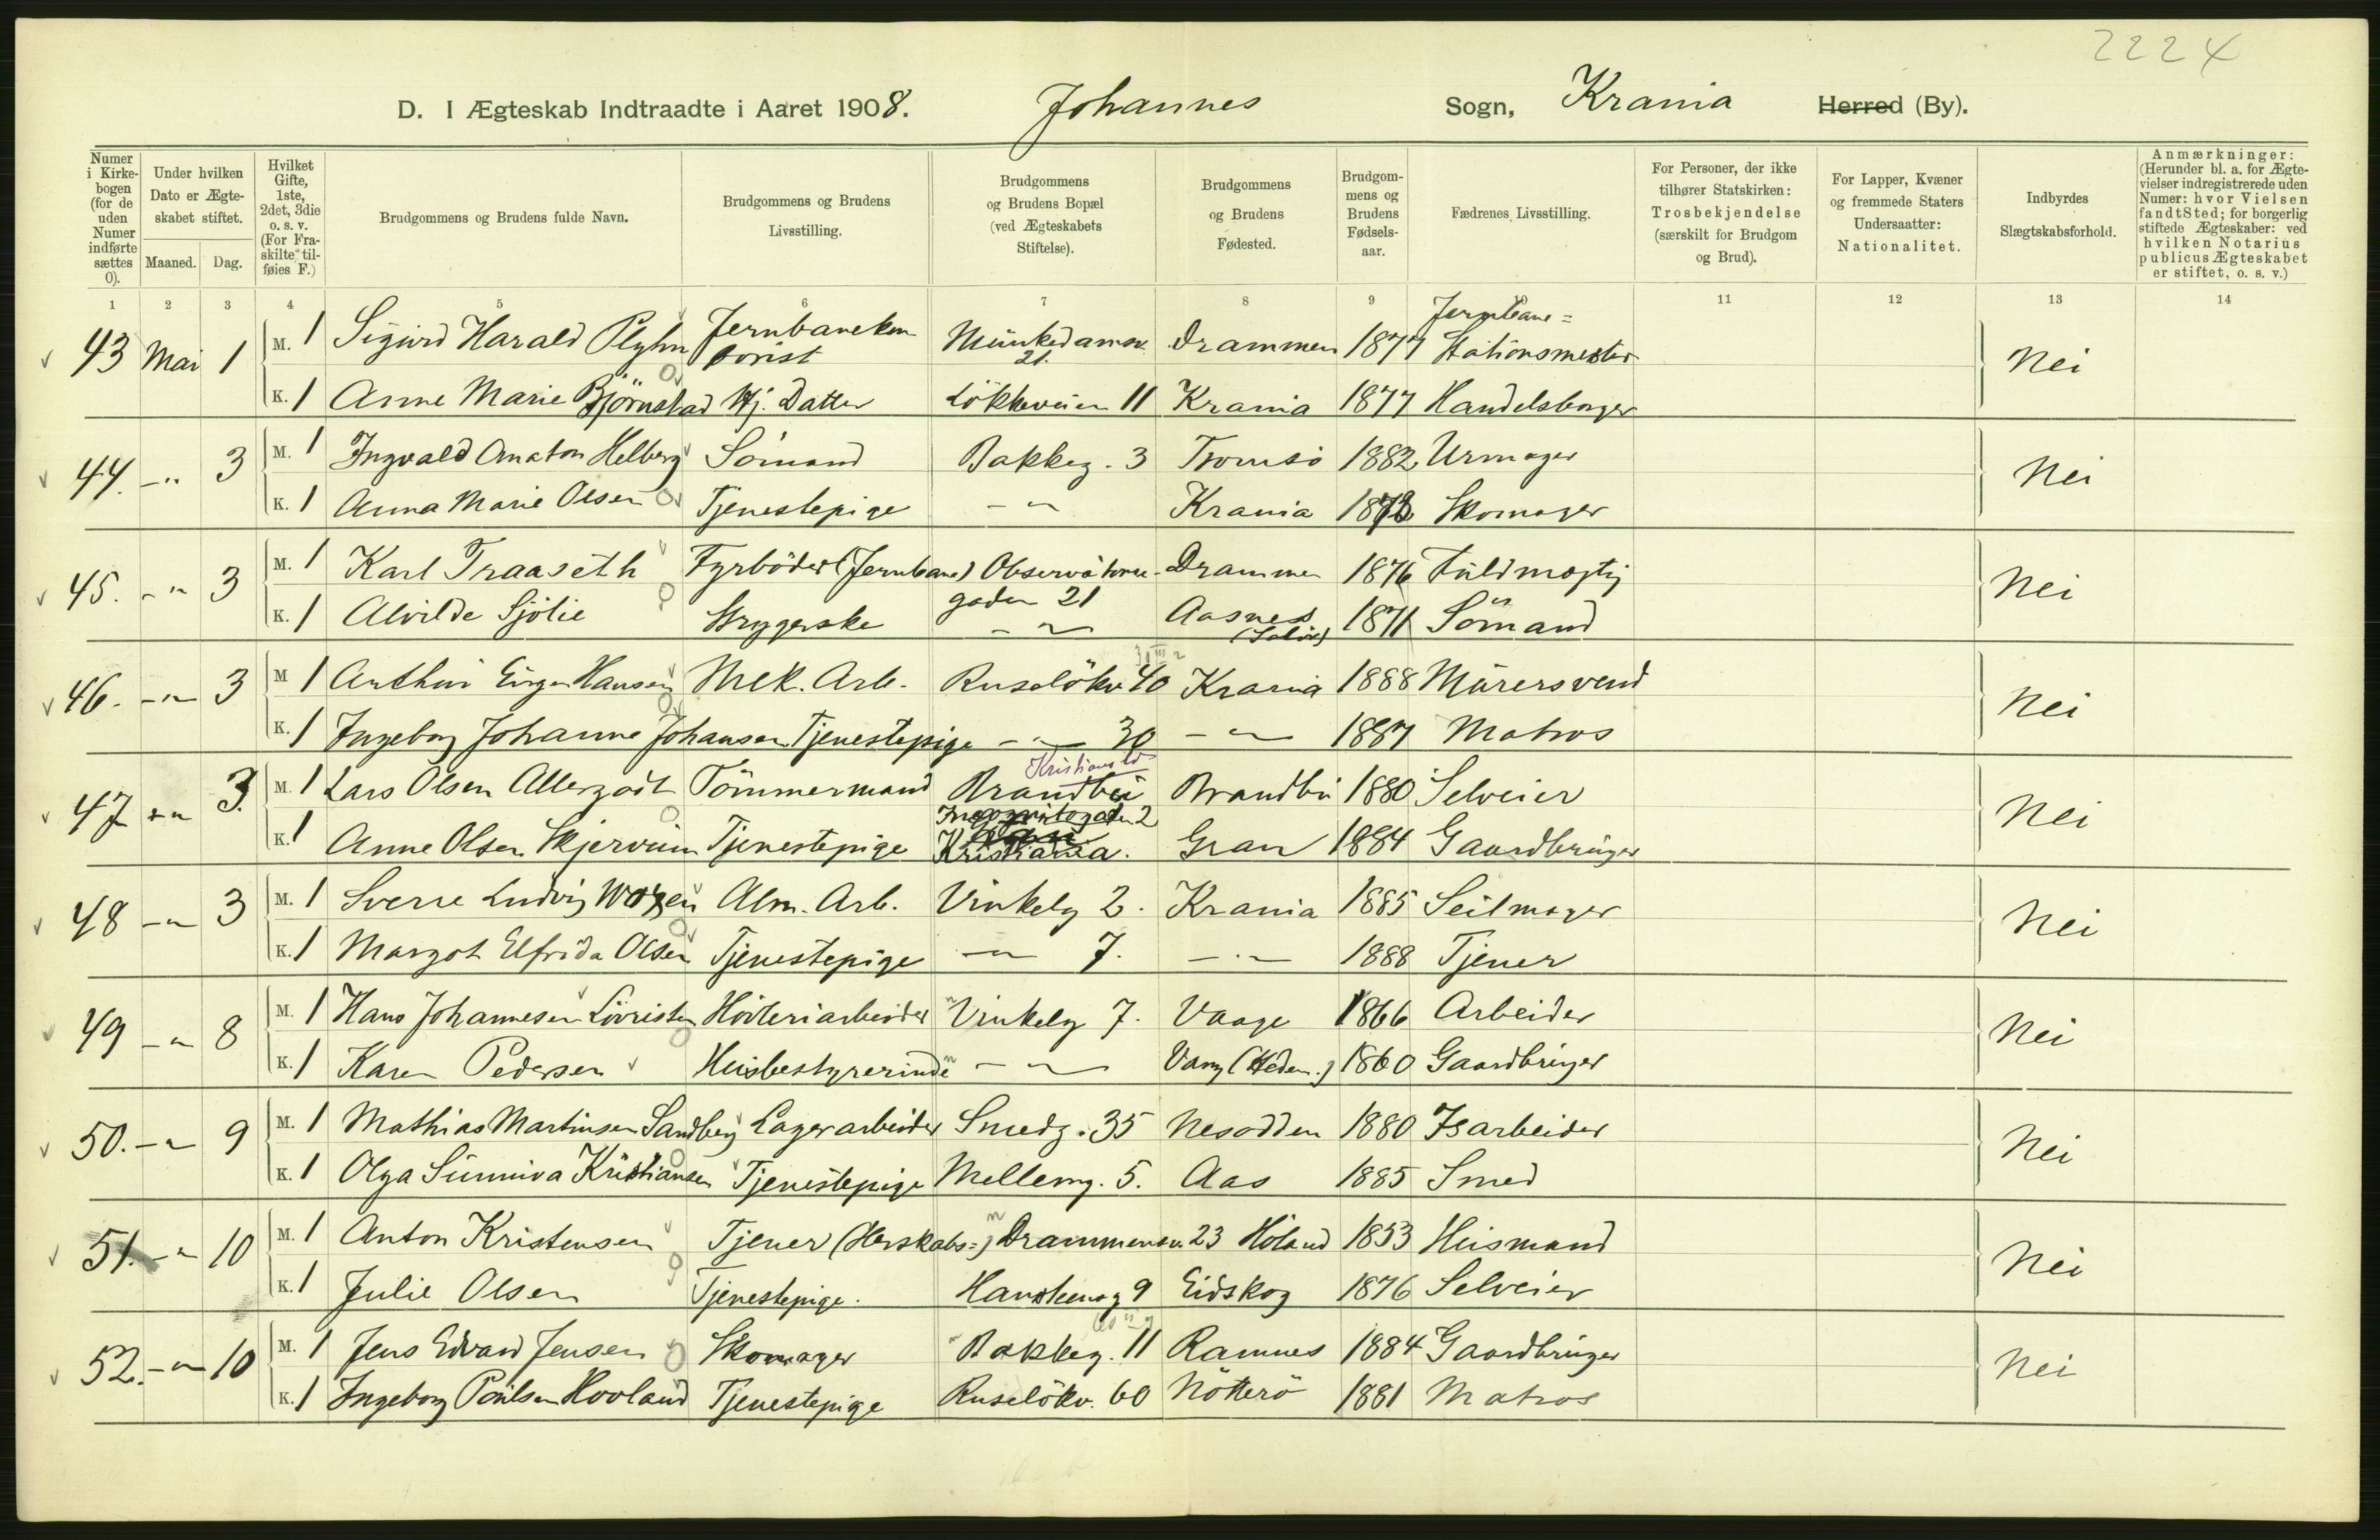 2224
D. I Ægteskab Indtraadte i Aaret 1908. Johannes Sogn, Krania Herred (By).
Numer i Kirke-bogen (for de uden Numer indførte sættes 0).
Under hvilken Dato er Ægte-skabet stiftet.
Maaned. Dag.
Hvilket Gifte, 1ste, 2det, 3die o. s. v. (For Fra-skilte til-føies F.)
Brudgommens og Brudens fulde Navn.
Brudgommens og Brudens Livsstilling.
Brudgommens og Brudens Bopæl (ved Ægteskabets Stiftelse).
Brudgommens og Brudens Fødested.
Brudgom-mens og Brudens Fødsels-aar.
Fædrenes Livsstilling.
For Personer, der ikke tilhører Statskirken: Trosbekjendelse (særskilt for Brudgom og Brud).
For Lapper, Kvæner og fremmede Staters Undersaatter: Nationalitet.
Indbyrdes Slægtskabsforhold.
Anmærkninger: (Herunder bl. a. for Ægte-vielser indregistrerede uden Numer: hvor Vielsen fandt Sted; for borgerlig stiftede Ægteskaber: ved hvilken Notarius publicus Ægteskabet er stiftet, o. s. v.)
1 2 3 4 5 6 7 8 9 10 11 12 13 14
43 Mai 1 M. 1 Sigurd Harald Plyhn Jernbanekontorist Munkedamsv. 21. Drammen 1877 Jernbane= Stationsmester Nei
K. 1 Anne Marie Björnstad Hj. Datter Lökkeveien 11 Krania 1877 Handelsborger
44. -"- 3 M. 1 Ingvald Anaton Helberg Sömand Bakkeg. 3 Tromsö 1882 Urmager Nei
K. 1 Anna Marie Olsen Tjenestepige -"- Krania Skomager
45. -"- 3 M. 1 Karl Traaseth Fyrböder (Jernbane) Observatorie-gaden 21 Drammen 1876 Fuldmægtig Nei
K. 1 Alvilde Sjölie Strygerske -"- Aasnes (Solör) 1871 Sömand
46. -"- 3 M 1 Arthur Hansen Mek. Arb. Ruselökv 40 Krania 1888 Murersvend Nei
K. 1 Ingeborg Johanne Johansen Tjenestepige -"- 30 -"- 1887 Matros
47 -"- 3. M. 1 Lars Olsen Tömmermand Brandbu Brandbu 1880 Selveier Nei
K. 1 Anne Olsen Skjervum Tjenestepige Incognitogaden 2 Kristiania. Gran 1884 Gaardbruger
48 -"- 3 M. 1 Sverre Ludvig Alm. Arb. Vinkelg 2. Krania 1885 Seilmager Nei
K. 1 Margot Elfrida Olsen Tjenestepige -"- 7. -"- 1888 Tjener
49 -"- 8 M. 1 Hans Johannesen Hövleriarbeider Vinkelg 7. Vaage 1866 Arbeider Nei
K. 1 Karen Pedersen Husbestyrerinde -"- Vang (Hedem.) 1860 Gaardbruger
50. -"- 9 M. 1 Mathias Martinsen Sandberg Lagerarbeider Smedg. 35 Nesodden 1880 Isarbeider Nei
K. 1 Olga Sunniva Kristiansen Tjenestepige Mellemg. 5. Aas 1885 Smed
51. -"- 10 M. 1 Anton Kristensen Tjener (Herskabs=) Drammensv. 23 Höland 1853 Husmand Nei
K. 1 Julie Olsen Tjenestepige. Hansteensg 9 Eidskog 1876 Selveier
52. -"- 10 M. 1 Jens Edvard Jensen Skomager Bakkeg. 11 Ramnes 1884 Gaardbruger Nei
K. 1 Ingeborg Poulsen Hovland Tjenestepige Ruselökv. 60 Nötterö 1881 Matros